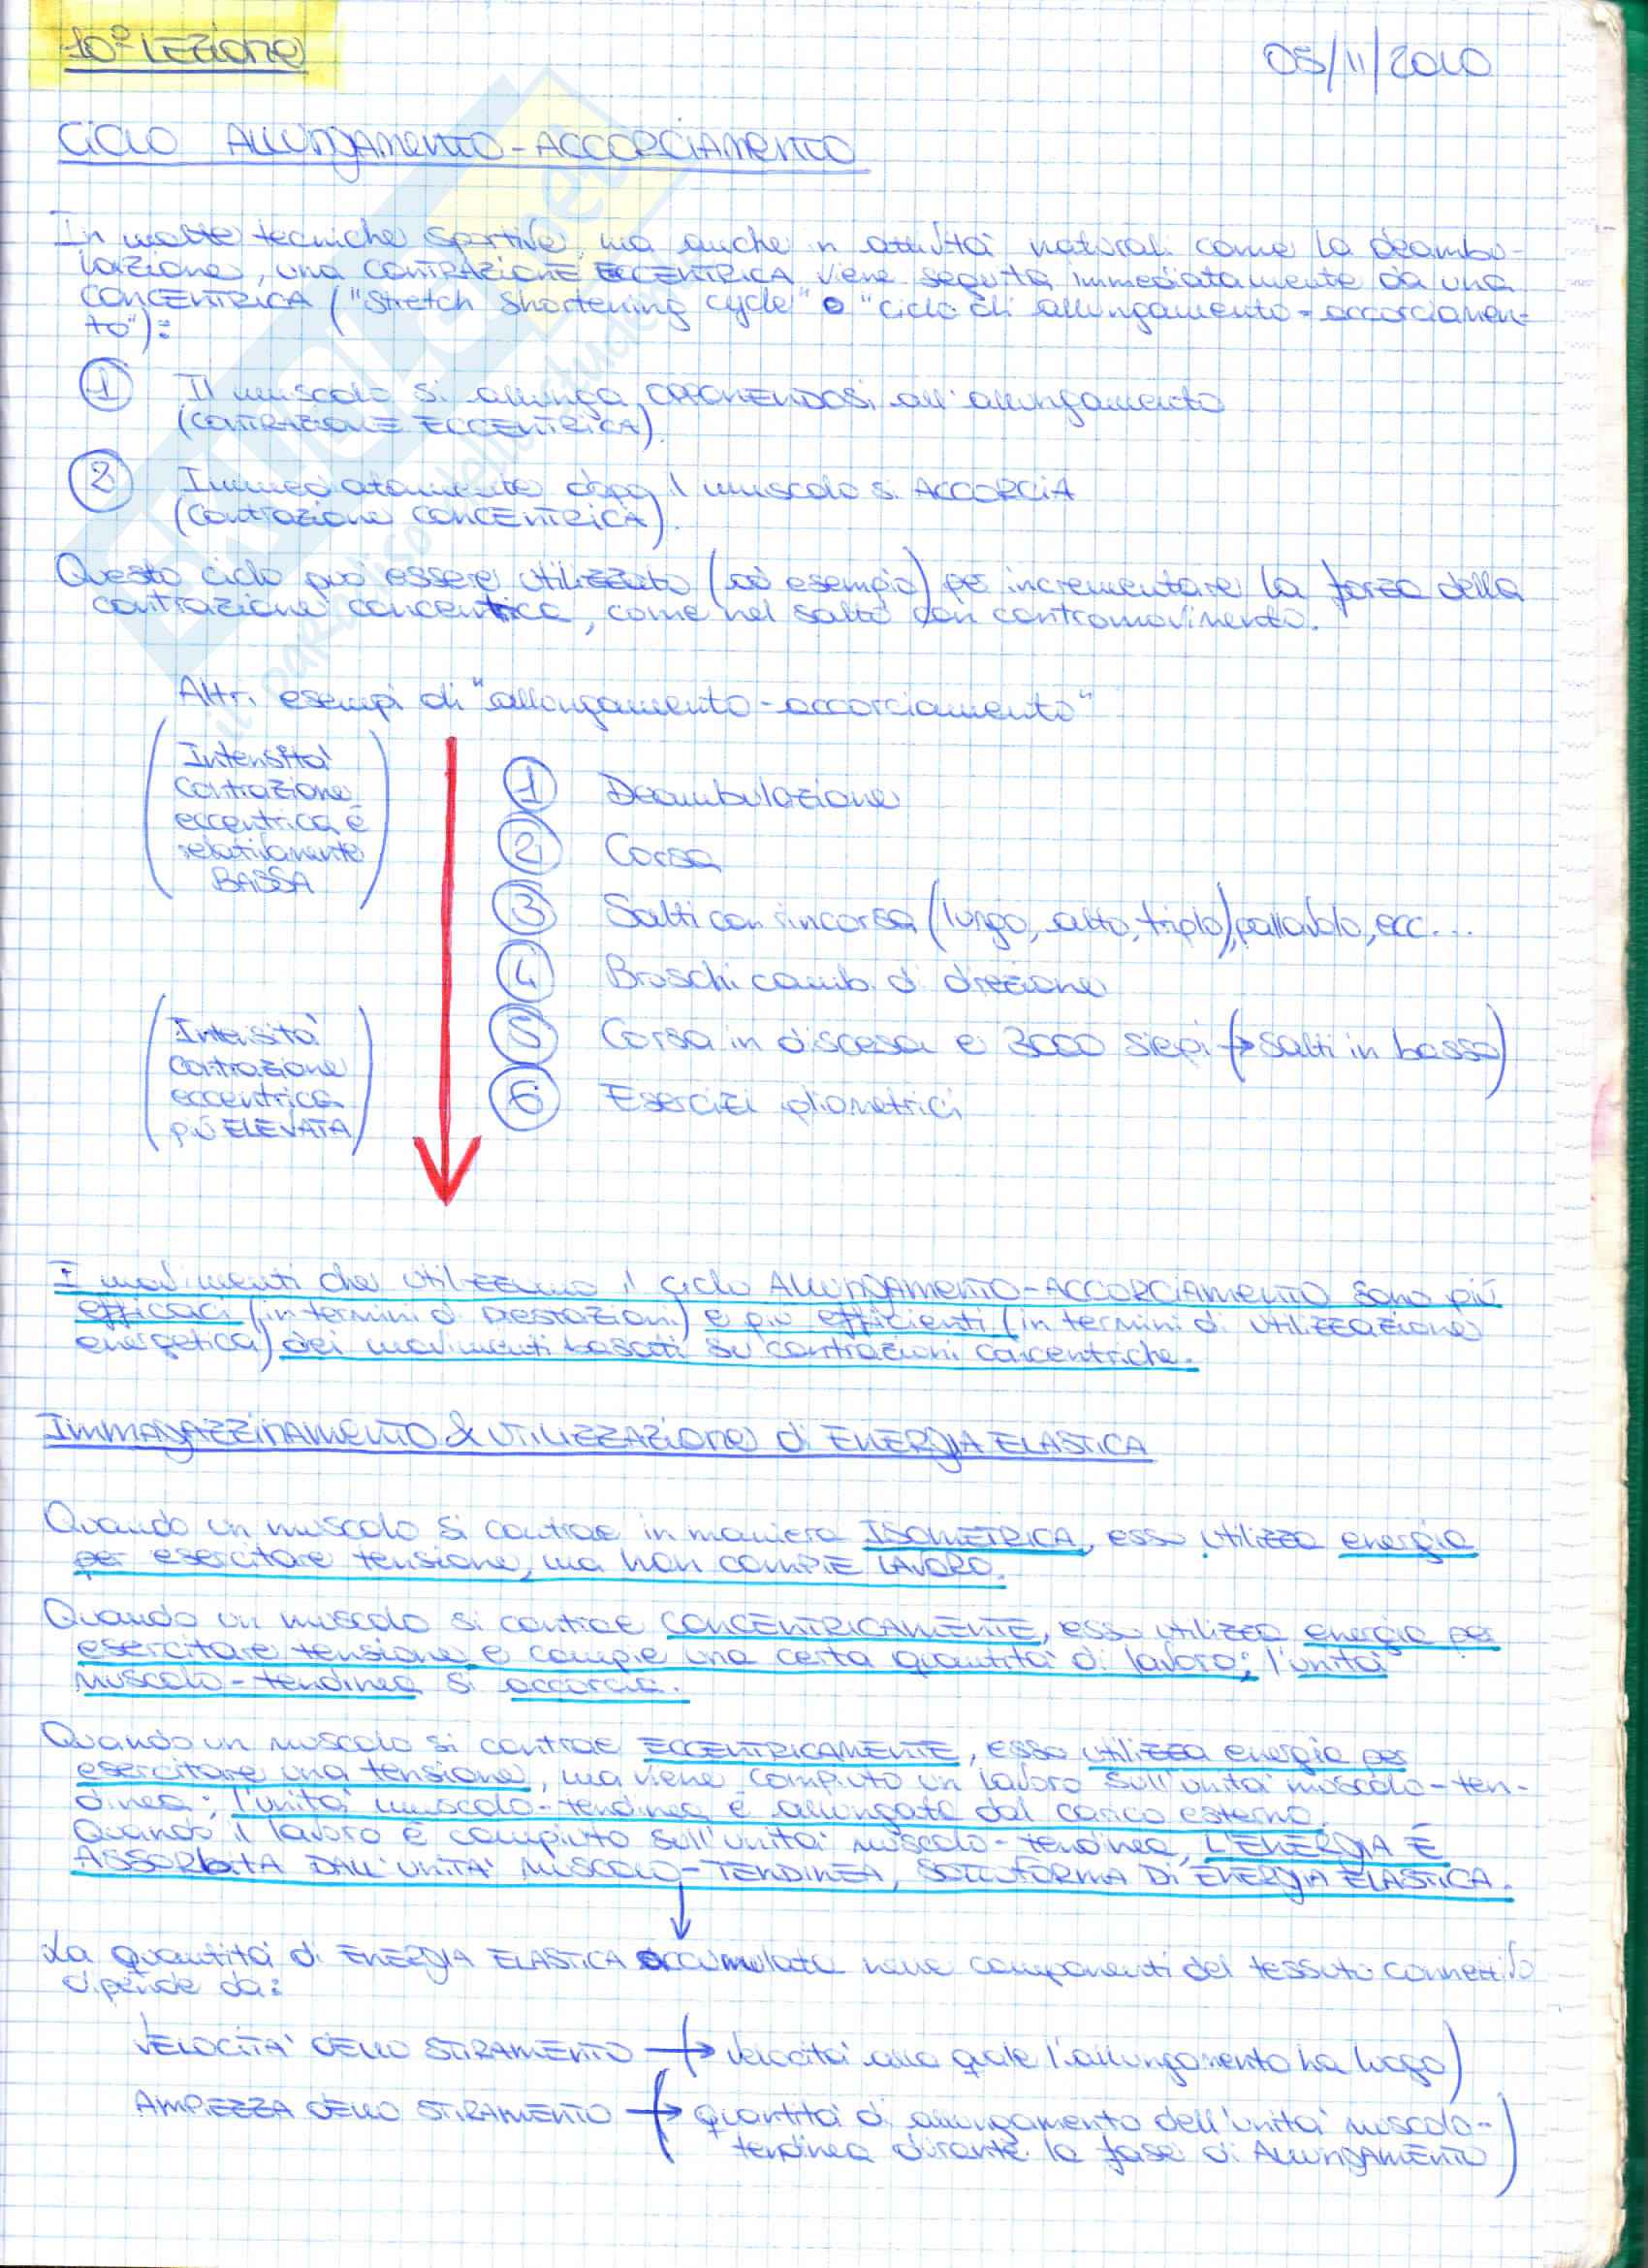 10° LEZIONE
05/11/2010
CICLO ALLUNGAMENTO-ACCORCIAMENTO
In molte tecniche sportive, ma anche in attività naturali come la deambu-
lazione, una CONTRAZIONE ECCENTRICA viene seguita immediatamente da una
CONCENTRICA ("Stretch Shortening cycle" o "ciclo di allungamento-accorciamen-
to"):
1 Il muscolo si allunga OPPONENDOSI all'allungamento
(CONTRAZIONE ECCENTRICA).
2 Immediatamente dopo il muscolo si ACCORCIA
(Contrazione CONCENTRICA).
Questo ciclo può essere utilizzato (ad esempio) per incrementare la forza della
contrazione concentrica, come nel salto con contromovimento.
Altri esempi di "allungamento-accorciamento"
(Intensità
contrazione
eccentrica è
relativamente
BASSA)
1 Deambulazione
2 Corsa
3 Salti con rincorsa (lungo, alto, triplo), pallavolo, ecc...
4 Bruschi camb. di direzione
5 Corsa in discesa e 3000 siepi (→ salti in basso)
6 Esercizi pliometrici
(Intensità
contrazione
eccentrica
più ELEVATA)
I movimenti che utilizzano il ciclo ALLUNGAMENTO-ACCORCIAMENTO sono più
efficaci (in termini di prestazioni) e più efficienti (in termini di utilizzazione
energetica) dei movimenti basati su contrazioni concentriche.
IMMAGAZZINAMENTO & UTILIZZAZIONE di ENERGIA ELASTICA
Quando un muscolo si contrae in maniera ISOMETRICA, esso utilizza energia
per esercitare tensione, ma non COMPIE LAVORO.
Quando un muscolo si contrae CONCENTRICAMENTE, esso utilizza energia per
esercitare tensione e compie una certa quantità di lavoro; l'unità
muscolo-tendinea si accorcia.
Quando un muscolo si contrae ECCENTRICAMENTE, esso utilizza energia per
esercitare una tensione, ma viene compiuto un lavoro sull'unità muscolo-ten-
dinea; l'unità muscolo-tendinea è allungata dal carico esterno.
Quando il lavoro è compiuto sull'unità muscolo-tendinea, L'ENERGIA È
ASSORBITA DALL'UNITA' MUSCOLO-TENDINEA, SOTTOFORMA DI ENERGIA ELASTICA.
La quantità di ENERGIA ELASTICA accumulata nelle componenti del tessuto connettivo
dipende da:
VELOCITA' DELLO STIRAMENTO (→ velocità alla quale l'allungamento ha luogo)
AMPIEZZA DELLO STIRAMENTO (→ quantità di allungamento dell'unità muscolo-
tendinea durante la fase di ALLUNGAMENTO)